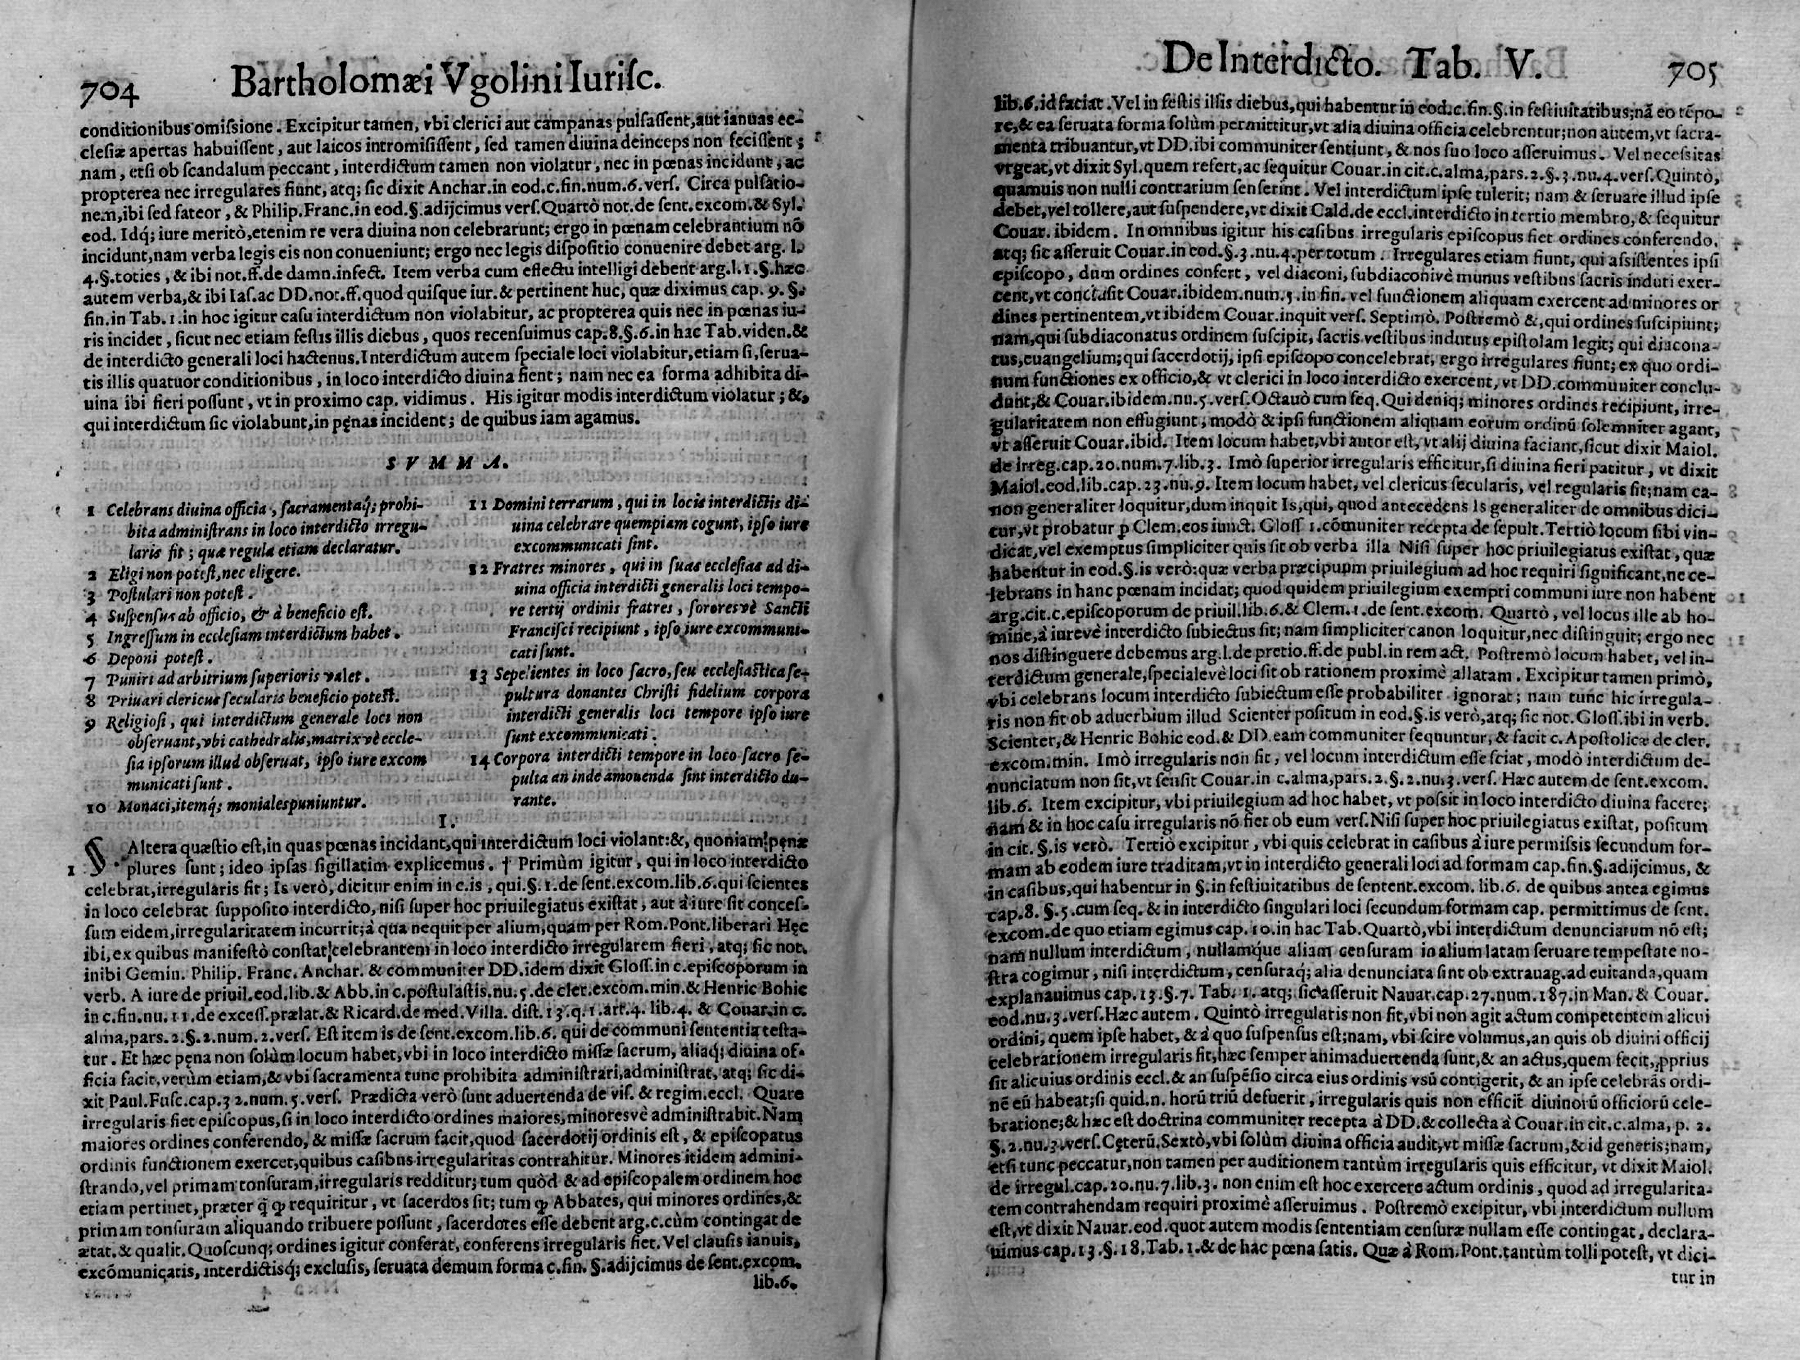 704 Bartholomæi Vgolini Iurisc.
conditionibus omissione. Excipitur tamen, vbi clerici aut campanas pulsassent, aut ianuas ec-
clesiæ apertas habuissent, aut laicos intromisissent, sed tamen diuina deinceps non fecissent;
nam, etsi ob scandalum peccant, interdictum tamen non violatur, nec in pœnas incidunt, ac
propterea nec irregulares fiunt, atq; sic dixit Anchar. in eod. c. fin. num. 6. vers. Circa pulsatio-
nem, ibi sed fateor, & Philip. Franc. in eod. §. adijcimus vers. Quartò not. de sent. excom. & Syl.
eod. Idq; iure meritò, etenim re vera diuina non celebrarunt; ergo in pœnam celebrantium nō
incidunt, nam verba legis eis non conueniunt; ergo nec legis dispositio conuenire debet arg. l.
4. §. toties, & ibi not. ff. de damn. infect. Item verba cum effectu intelligi debent arg. l. 1. §. hæc
autem verba, & ibi Ias. ac DD. not. ff. quod quisque iur. & pertinent huc, quæ diximus cap. 9. §.
fin. in Tab. 1. in hoc igitur casu interdictum non violabitur, ac propterea quis nec in pœnas iu-
ris incidet, sicut nec etiam festis illis diebus, quos recensuimus cap. 8. §. 6. in hac Tab. viden. &
de interdicto generali loci hactenus. Interdictum autem speciale loci violabitur, etiam si, serua-
tis illis quatuor conditionibus, in loco interdicto diuina fient; nam nec ea forma adhibita di-
uina ibi fieri possunt, vt in proximo cap. vidimus. His igitur modis interdictum violatur; &,
qui interdictum sic violabunt, in pęnas incident; de quibus iam agamus.
SVMMA.
1 Celebrans diuina officia, sacramentaq; prohi-
bita administrans in loco interdicto irregu-
laris fit; quæ regula etiam declaratur.
2 Eligi non potest, nec eligere.
3 Postulari non potest.
4 Suspensus ab officio, & à beneficio est.
5 Ingressum in ecclesiam interdictum habet.
6 Deponi potest.
7 Puniri ad arbitrium superioris valet.
8 Priuari clericus secularis beneficio potest.
9 Religiosi, qui interdictum generale loci non
obseruant, vbi cathedralis, matrixvè eccle-
sia ipsorum illud obseruat, ipso iure excom
municati sunt.
10 Monaci, itemq; moniales puniuntur.
11 Domini terrarum, qui in locis interdictis di-
uina celebrare quempiam cogunt, ipso iure
excommunicati sint.
12 Fratres minores, qui in suas ecclesias ad di-
uina officia interdicti generalis loci tempo-
re tertij ordinis fratres, sororesvè Sancti
Francisci recipiunt, ipso iure excommuni-
cati sunt.
13 Sepelientes in loco sacro, seu ecclesiastica se-
pultura donantes Christi fidelium corpora
interdicti generalis loci tempore ipso iure
sunt excommunicati.
14 Corpora interdicti tempore in loco sacro se-
pulta an inde amouenda sint interdicto du-
rante.
I.
SAltera quæstio est, in quas pœnas incidant, qui interdictum loci violant: &, quoniam pęnæ
1 plures sunt; ideo ipsas sigillatim explicemus. † Primùm igitur, qui in loco interdicto
celebrat, irregularis fit; Is verò, dicitur enim in c. is, qui. §. 1. de sent. excom. lib. 6. qui scientes
in loco celebrat supposito interdicto, nisi super hoc priuilegiatus existat, aut à iure sit conces-
sum eidem, irregularitatem incurrit; à qua nequit per alium, quam per Rom. Pont. liberari Hęc
ibi, ex quibus manifestò constat, celebrantem in loco interdicto irregularem fieri, atq; sic not.
inibi Gemin. Philip. Franc. Anchar. & communiter DD. idem dixit Gloss. in c. episcoporum in
verb. A iure de priuil. eod. lib. & Abb. in c. postulastis. nu. 5. de cler. excom. min. & Henric Bohic
in c. fin. nu. 11. de excess. prælat. & Ricard. de med. Villa. dist. 13. q. 1. art. 4. lib. 4. & Couar. in c.
alma, pars. 2. §. 2. num. 2. vers. Est item is de sent. excom. lib. 6. qui de communi sententia testa-
tur. Et hæc pęna non solùm locum habet, vbi in loco interdicto missæ sacrum, aliaq; diuina of-
ficia facit, verùm etiam, & vbi sacramenta tunc prohibita administrari, administrat, atq; sic di-
xit Paul. Fusc. cap. 32. num. 5. vers. Prædicta verò sunt aduertenda de vis. & regim. eccl. Quare
irregularis fiet episcopus, si in loco interdicto ordines maiores, minoresvè administrabit. Nam
maiores ordines conferendo, & missæ sacrum facit, quod sacerdotij ordinis est, & episcopatus
ordinis functionem exercet, quibus casibus irregularitas contrahitur. Minores itidem admini-
strando, vel primam tonsuram, irregularis redditur; tum quòd & ad episcopalem ordinem hoc
etiam pertinet, præter q̄ ꝙ requiritur, vt sacerdos sit; tum ꝙ Abbates, qui minores ordines, &
primam tonsuram aliquando tribuere possunt, sacerdotes esse debent arg. c. cùm contingat de
ætat. & qualit. Quoscunq; ordines igitur conferat, conferens irregularis fiet. Vel clausis ianuis,
excōmunicatis, interdictisq; exclusis, seruata demum forma c. fin. §. adijcimus de sent. excom.
lib. 6.
De Interdicto. Tab. V. 705
lib. 6. id faciat. Vel in festis illis diebus, qui habentur in eod. c. fin. §. in festiuitatibus; nā eo tēpo-
re, & ea seruata forma solùm permittitur, vt alia diuina officia celebrentur; non autem, vt sacra-
menta tribuantur, vt DD. ibi communiter sentiunt, & nos suo loco asseruimus. Vel necessitas
vrgeat, vt dixit Syl. quem refert, ac sequitur Couar. in cit. c. alma, pars. 2. §. 3. nu. 4. vers. Quintò,
quamuis non nulli contrarium senserint. Vel interdictum ipse tulerit; nam & seruare illud ipse
debet, vel tollere, aut suspendere, vt dixit Cald. de eccl. interdicto in tertio membro, & sequitur
Couar. ibidem. In omnibus igitur his casibus irregularis episcopus fiet ordines conferendo,
atq; sic asseruit Couar. in eod. §. 3. nu. 4. per totum. Irregulares etiam fiunt, qui assistentes ipsi
episcopo, dum ordines confert, vel diaconi, subdiaconivè munus vestibus sacris induti exer-
cent, vt conclusit Couar. ibidem. num. 5. in fin. vel functionem aliquam exercent ad minores or
dines pertinentem, vt ibidem Couar. inquit vers. Septimò. Postremò &, qui ordines suscipiunt;
nam, qui subdiaconatus ordinem suscipit, sacris vestibus indutus epistolam legit; qui diacona-
tus, euangelium; qui sacerdotij, ipsi episcopo concelebrat, ergo irregulares fiunt; ex quo ordi-
num functiones ex officio, & vt clerici in loco interdicto exercent, vt DD. communiter conclu-
dunt, & Couar. ibidem. nu. 5. vers. Octauò cum seq. Qui deniq; minores ordines recipiunt, irre-
gularitatem non effugiunt, modò & ipsi functionem aliquam eorum ordinū solemniter agant,
vt asseruit Couar. ibid. Item locum habet, vbi autor est, vt alij diuina faciant, sicut dixit Maiol.
de irreg. cap. 20. num. 7. lib. 3. Imò superior irregularis efficitur, si diuina fieri patitur, vt dixit
Maiol. eod. lib. cap. 23. nu. 9. Item locum habet, vel clericus secularis, vel regularis sit; nam ca-
non generaliter loquitur, dum inquit Is, qui, quod antecedens Is generaliter de omnibus dici-
tur, vt probatur ꝑ Clem. eos iunct. Gloss 1. cōmuniter recepta de sepult. Tertiò locum sibi vin-
dicat, vel exemptus simpliciter quis sit ob verba illa Nisi super hoc priuilegiatus existat, quæ
habentur in eod. §. is verò: quæ verba præcipuum priuilegium ad hoc requiri significant, ne ce-
lebrans in hanc pœnam incidat; quod quidem priuilegium exempti communi iure non habent
arg. cit. c. episcoporum de priuil. lib. 6. & Clem. 1. de sent. excom. Quartò, vel locus ille ab ho-
mine, à iurevè interdicto subiectus sit; nam simpliciter canon loquitur, nec distinguit; ergo nec
nos distinguere debemus arg. l. de pretio. ff. de publ. in rem act. Postremò locum habet, vel in-
terdictum generale, specialevè loci sit ob rationem proximè allatam. Excipitur tamen primò,
vbi celebrans locum interdicto subiectum esse probabiliter ignorat; nam tunc hic irregula-
ris non fit ob aduerbium illud Scienter positum in eod. §. is verò, atq; sic not. Gloss. ibi in verb.
Scienter, & Henric Bohic eod. & DD. eam communiter sequuntur, & facit c. Apostolicæ de cler.
excom. min. Imò irregularis non fit, vel locum interdictum esse sciat, modò interdictum de-
nunciatum non sit, vt sensit Couar. in c. alma, pars. 2. §. 2. nu. 3. vers. Hæc autem de sent. excom.
lib. 6. Item excipitur, vbi priuilegium ad hoc habet, vt possit in loco interdicto diuina facere;
nam & in hoc casu irregularis nō fiet ob eum vers. Nisi super hoc priuilegiatus existat, positum
in cit. §. is verò. Tertiò excipitur, vbi quis celebrat in casibus à iure permissis secundum for-
mam ab eodem iure traditam, vt in interdicto generali loci ad formam cap. fin. §. adijcimus, &
in casibus, qui habentur in §. in festiuitatibus de sentent. excom. lib. 6. de quibus antea egimus
cap. 8. §. 5. cum seq. & in interdicto singulari loci secundum formam cap. permittimus de sent.
excom. de quo etiam egimus cap. 10. in hac Tab. Quartò, vbi interdictum denunciarum nō est;
nam nullum interdictum, nullamque aliam censuram in alium latam seruare tempestate no-
stra cogimur, nisi interdictum, censuraq; alia denunciata sint ob extrauag. ad euitanda, quam
explanauimus cap. 13. §. 7. Tab. 1. atq; sic asseruit Nauar. cap. 27. num. 187. in Man. & Couar.
eod. nu. 3. vers. Hæc autem. Quintò irregularis non fit, vbi non agit actum competentem alicui
ordini, quem ipse habet, & à quo suspensus est; nam, vbi scire volumus, an quis ob diuini officij
celebrationem irregularis fit, hæc semper animaduertenda sunt, & an actus, quem fecit, ꝓprius
sit alicuius ordinis eccl. & an suspēsio circa eius ordinis vsū contigerit, & an ipse celebrās ordi-
nē eū habeat; si quid. n. horū triū defuerit, irregularis quis non efficit diuinorū officiorū cele-
bratione; & hæc est doctrina communiter recepta à DD. & collecta à Couar. in cit. c. alma, p. 2.
§. 2. nu. 3. vers. Cęterū. Sextò, vbi solùm diuina officia audit, vt missæ sacrum, & id generis; nam,
etsi tunc peccatur, non tamen per auditionem tantùm irregularis quis efficitur, vt dixit Maiol.
de irregul. cap. 20. nu. 7. lib. 3. non enim est hoc exercere actum ordinis, quod ad irregularita-
tem contrahendam requiri proximè asseruimus. Postremò excipitur, vbi interdictum nullum
est, vt dixit Nauar. eod. quot autem modis sententiam censuræ nullam esse contingat, declara-
uimus cap. 13. §. 18. Tab. 1. & de hac pœna satis. Quæ à Rom. Pont. tantùm tolli potest, vt dici-
tur in